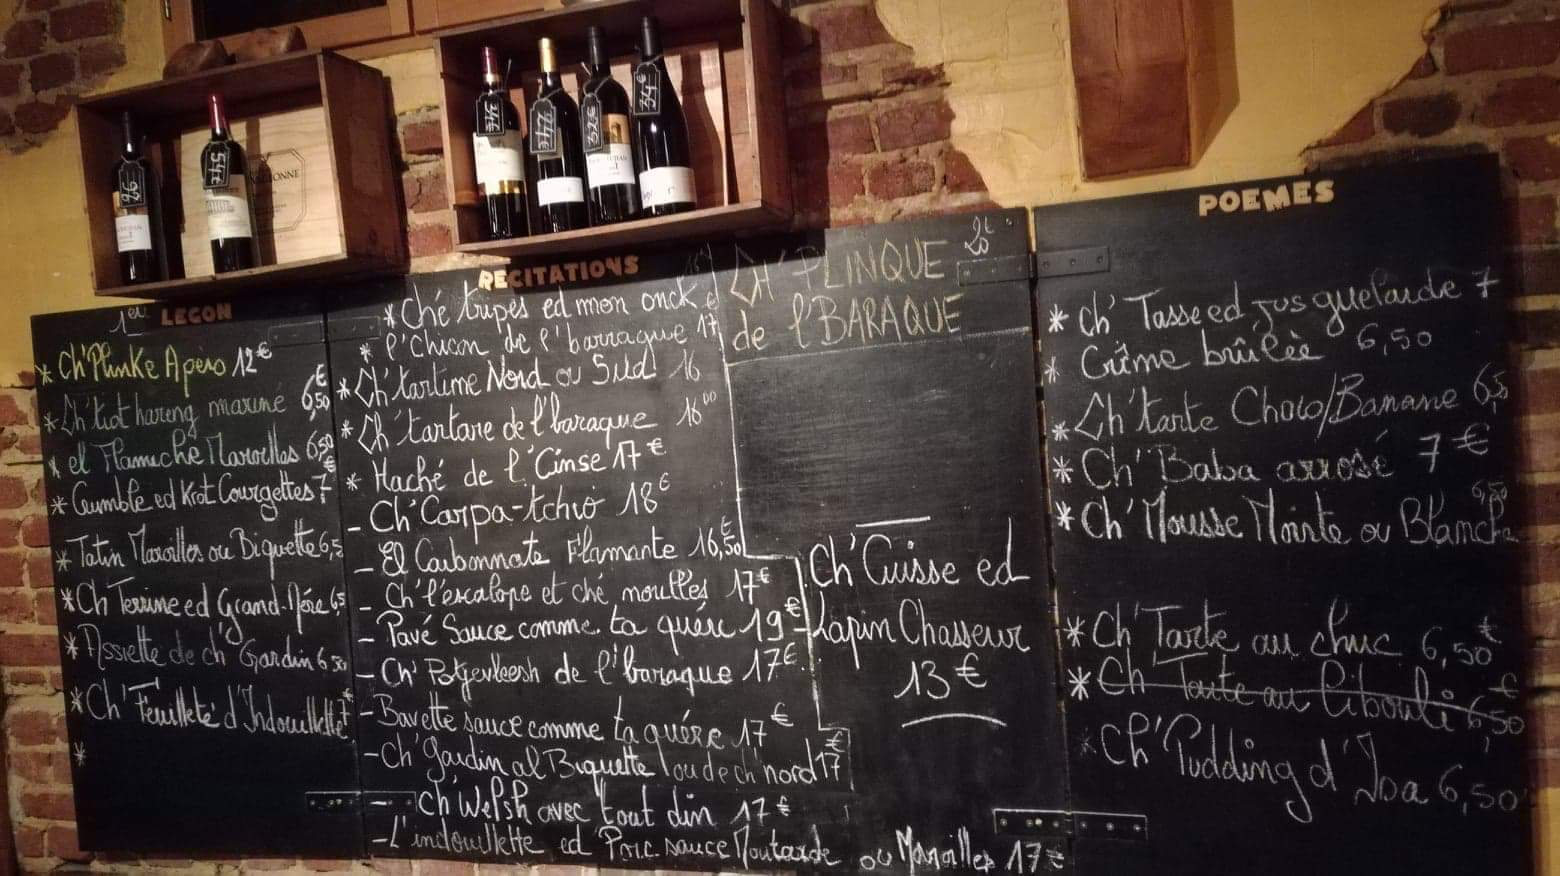 1er LEÇON
* Ch'Plinke Apéro 12€
* Ch'tiot hareng mariné 6,50€
* el Flamiche Maroilles 6,50
* Crumble ed Krot Courgettes 7€
* Tatin Maroilles ou Biquette 6,5
* Ch Terrine ed Grand-Mère 6,5
* Assiette de ch' Gardin 6,50
* Ch' Feuilleté d'Indouillette 7€
*
RECITATIONS
* Ché tripes ed mon onck
* l'Chicon de l'barraque 17
* Ch' tartine Nord ou Sud 16
* Ch' tartare de l'baraque 16,00
* Haché de l'Cinse 17€
- Ch' Carpa-tchio 18€
- El Carbonnate Flamante 16,50€
- Ch' l'escalope et ché moulles 17€
- Pavé Sauce comme ta quére 19€
- Ch' Potjevleesh de l'baraque 17€
- Bavette sauce comme ta quére 17€
- Ch' gardin al Biquette / ou de ch'nord 17€
- Ch' Welsh avec tout din 17€
- L'indouillette ed Porc sauce Moutarde ou Maroilles 17€
Ch' PLINQUE
de l'BARAQUE
Ch' Cuisse ed
Lapin Chasseur
13€
POEMES
* Ch' Tasse ed jus guelarde 7
* Crème brûlée 6,50
* Ch' tarte Choco/Banane 6,5
* Ch' Baba arrosé 7€
* Ch' Mousse Mointe ou Blanche 6,50
* Ch' Tarte au chuc 6,50€
* Ch' Tarte au Libouli 6,50€
* Ch' Pudding d'Isa 6,50
34€
24€
32€
34€
26
54€